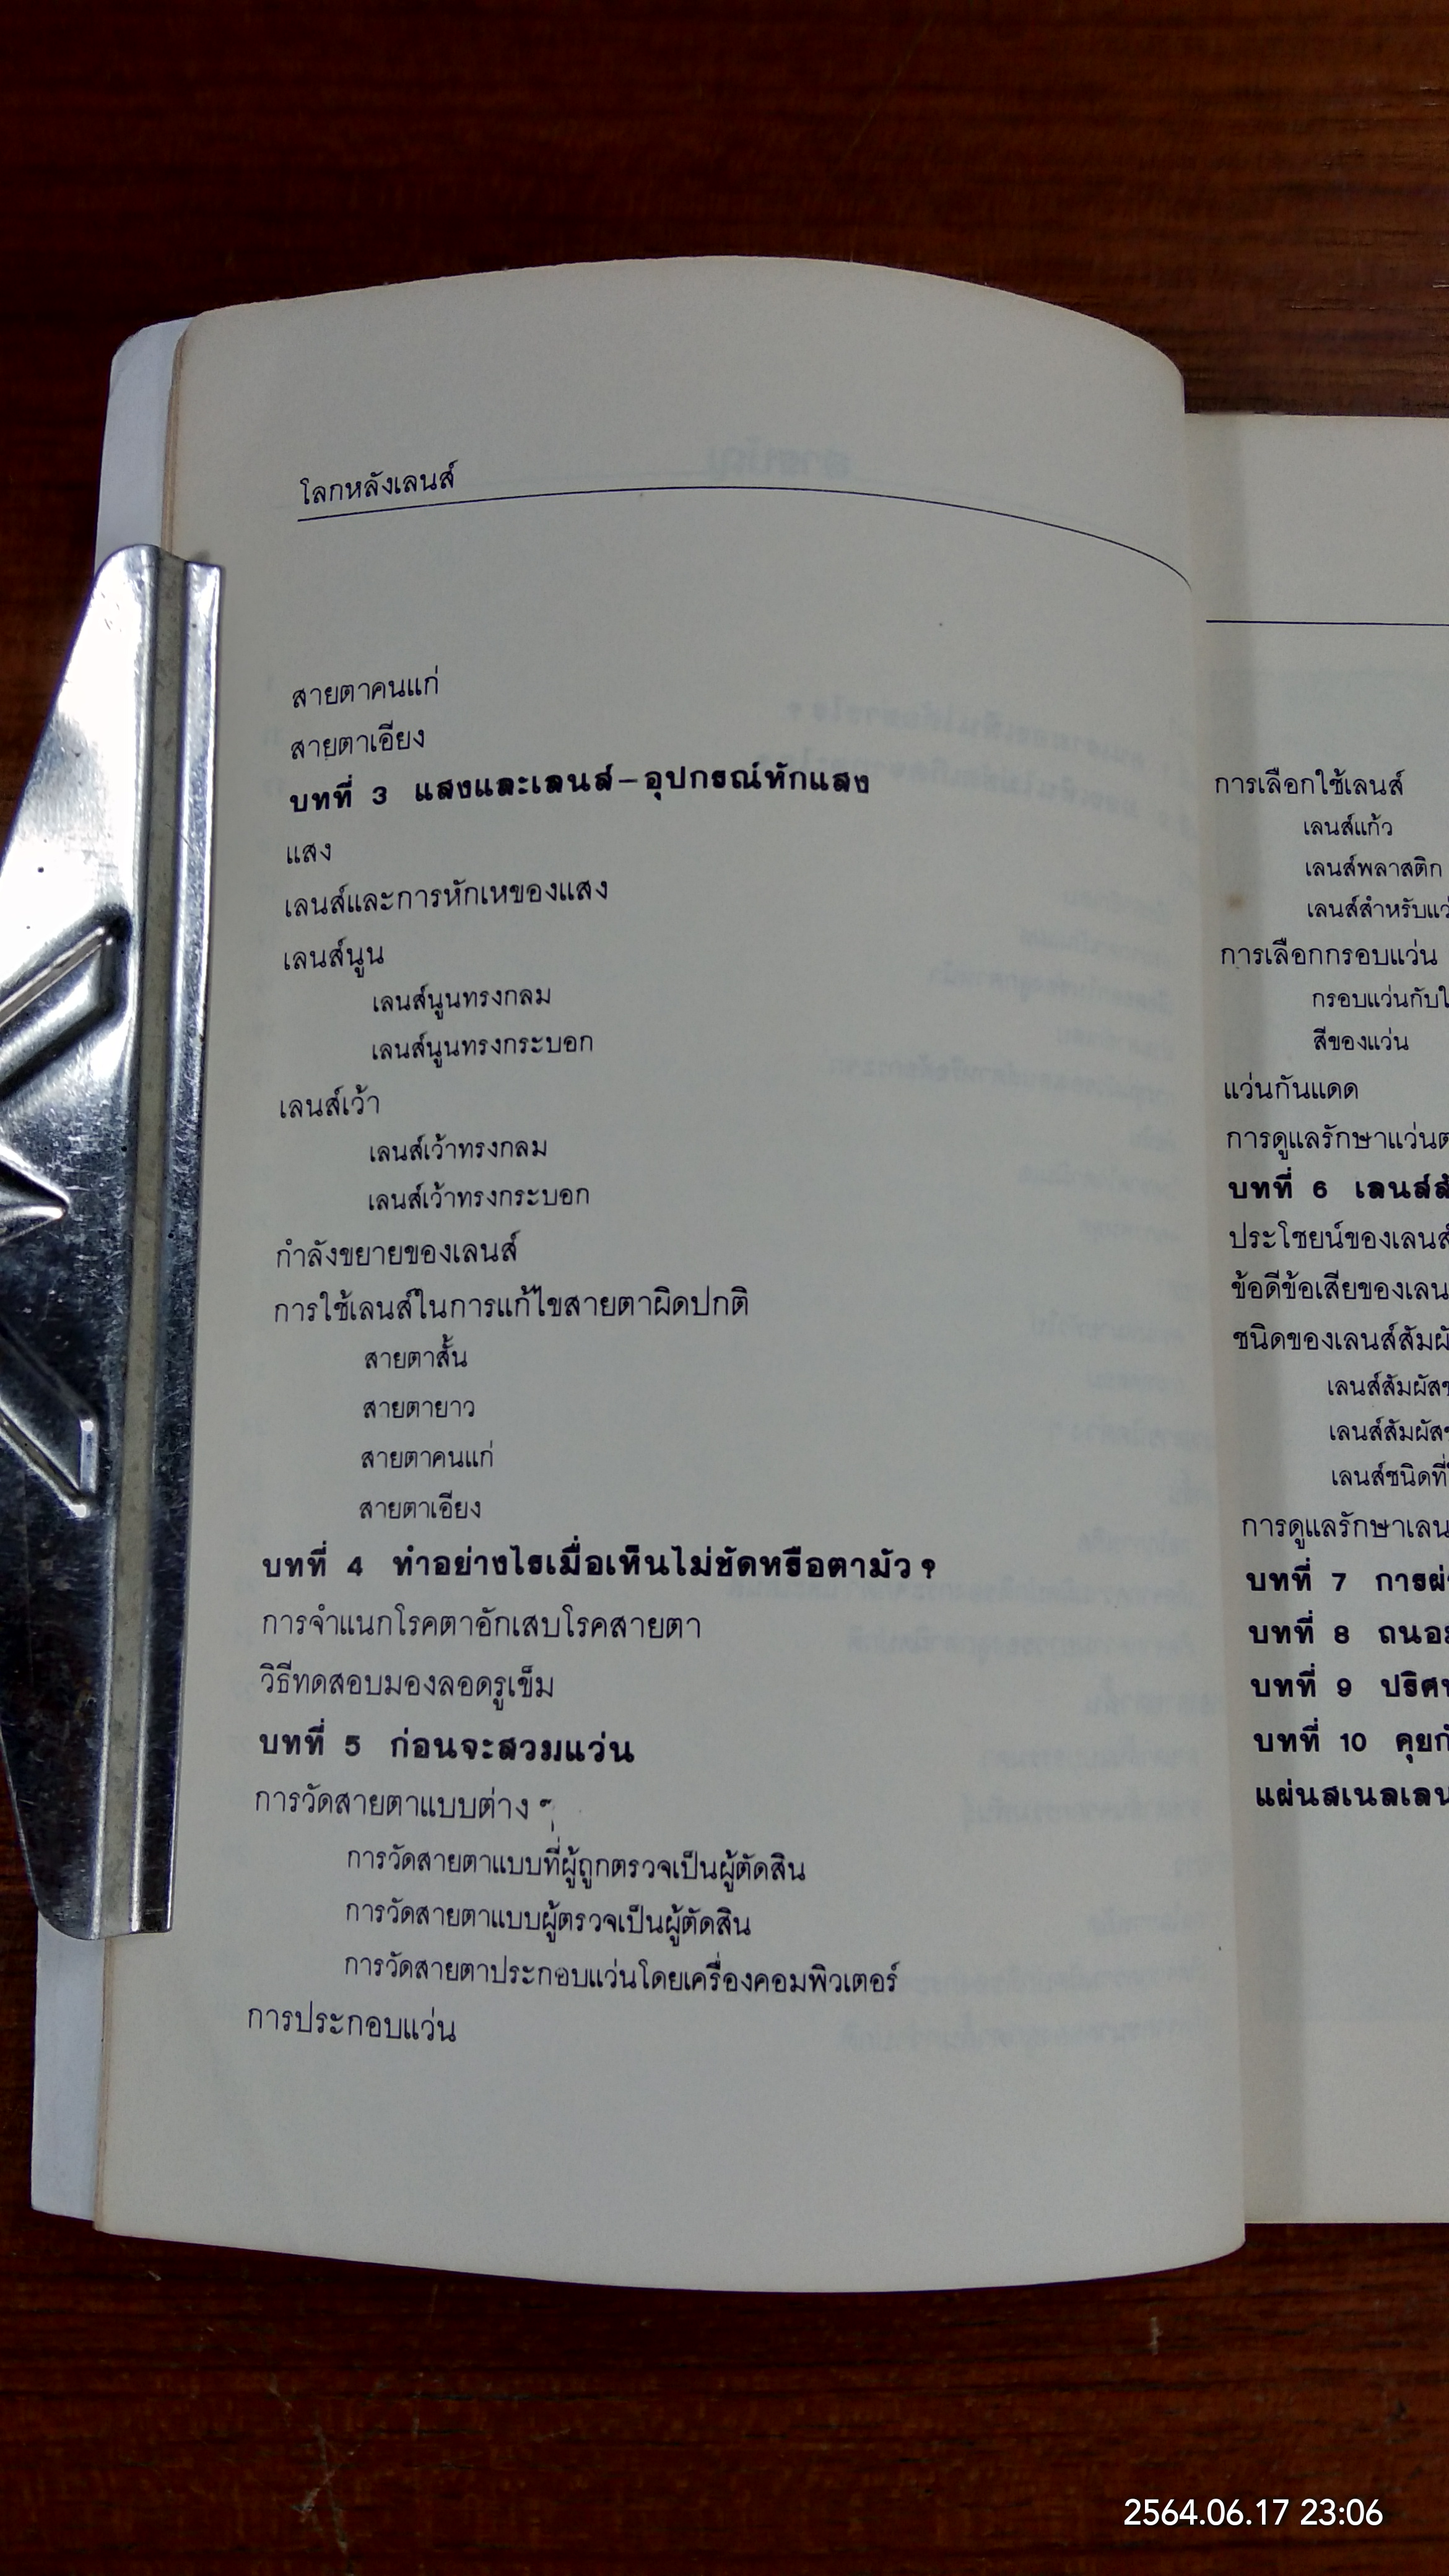 โลกหลังเลนส์
สายตาคนแก่
สายตาเอียง
บทที่ 3 แสงและเลนส์-อุปกรณ์หักแสง
แสง
เลนส์และการหักเหของแสง
เลนส์นูน
เลนส์นูนทรงกลม
เลนส์นูนทรงกระบอก
เลนส์เว้า
เลนส์เว้าทรงกลม
เลนส์เว้าทรงกระบอก
กำลังขยายของเลนส์
การใช้เลนส์ในการแก้ไขสายตาผิดปกติ
สายตาสั้น
สายตายาว
สายตาคนแก่
สายตาเอียง
บทที่ 4 ทำอย่างไรเมื่อเห็นไม่ชัดหรือตามัว ?
การจำแนกโรคตาอักเสบโรคสายตา
วิธีทดสอบมองลอดรูเข็ม
บทที่ 5 ก่อนจะสวมแว่น
การวัดสายตาแบบต่าง ๆ
การวัดสายตาแบบที่ผู้ถูกตรวจเป็นผู้ตัดสิน
การวัดสายตาแบบผู้ตรวจเป็นผู้ตัดสิน
การวัดสายตาประกอบแว่นโดยเครื่องคอมพิวเตอร์
การประกอบแว่น
การเลือกใช้เลนส์
เลนส์แก้ว
เลนส์พลาสติก
เลนส์สำหรับแว่
การเลือกกรอบแว่น
กรอบแว่นกับใ
สีของแว่น
แว่นกันแดด
การดูแลรักษาแว่นต
บทที่ 6 เลนส์สั
ประโชยน์ของเลนส์
ข้อดีข้อเสียของเลน
ชนิดของเลนส์สัมผั
เลนส์สัมผัสช
เลนส์สัมผัสช
เลนส์ชนิดที่ใ
การดูแลรักษาเลน
บทที่ 7 การผ่
บทที่ 8 ถนอม
บทที่ 9 ปริศ
บทที่ 10 คุยก
แผ่นสเนลเลน
2564.06.17 23:06